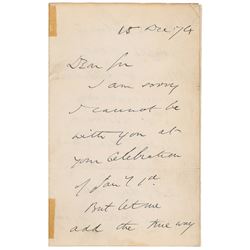 15 Dec 74
Dear Sir
I am sorry
I cannot be
with you at
your Celebration
of Jan'y 1st.
But let me
add the true way